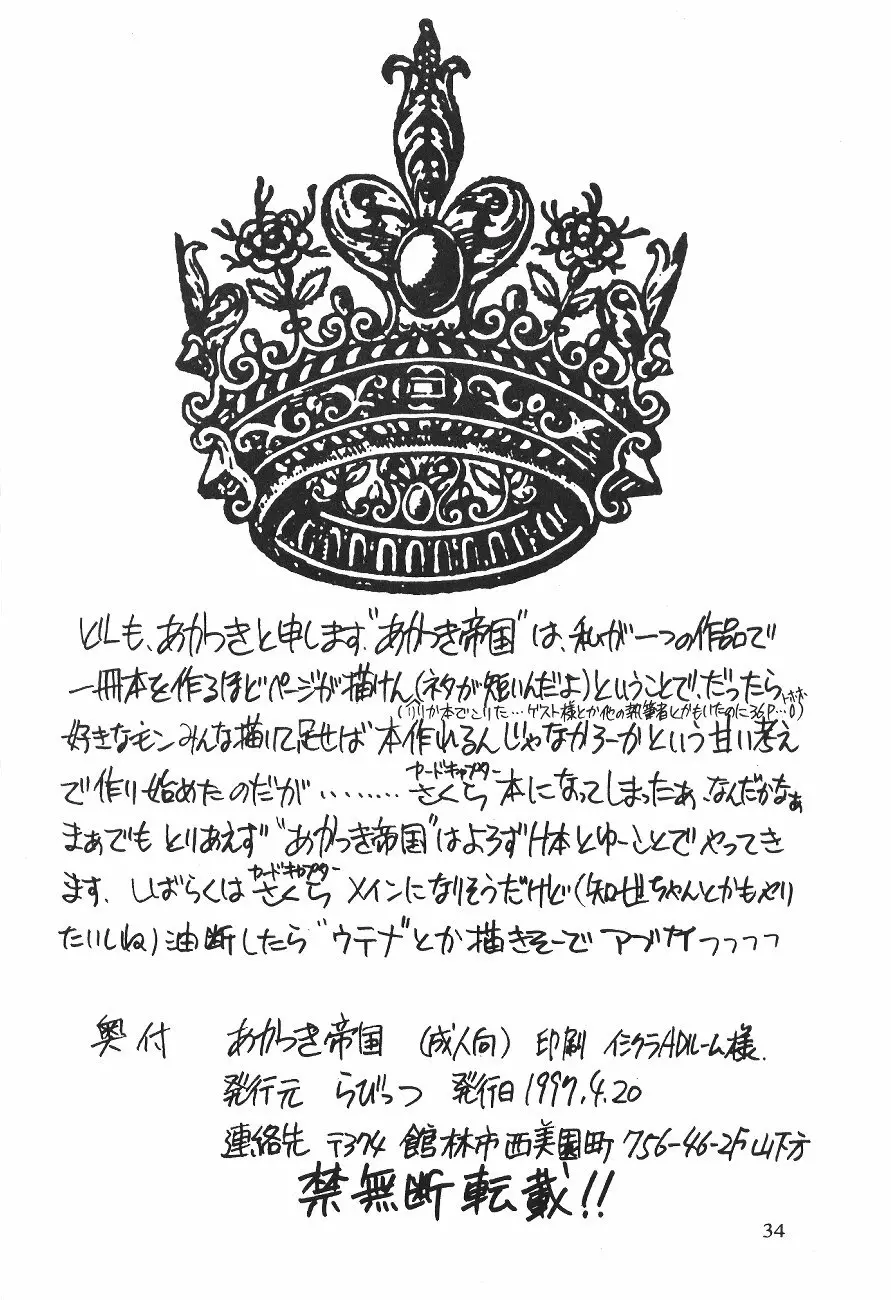 どーも、あかつきと申します。"あかつき帝国"は、私が一つの作品で
一冊本を作るほどページが描けん(ネタが短いんだよ)ということで、だったら
(リリカ本でこりた…ゲスト様とか他の執筆者とかもいたのに36P…0)トホホ
好きなモンみんな描いて足せば 本作れるんじゃなかろーかという甘い考え
で作り始めたのだが ‥‥‥‥ カードキャプターさくら 本になってしまったぁ、なんだかなぁ
まぁでも とりあえず "あかつき帝国"はよろずH本とゆーことで やってき
ます. しばらくは カードキャプターさくら メインになりそうだけど(知世ちゃんとかもやり
たいしね)油断したら "ウテナ"とか描きそーで アブナイっっっっ
奥付 あかつき帝国 (成人向) 印刷 イシクラADルーム様.
発行元 らびっつ 発行日 1997.4.20
連絡先 〒374 館林市西美園町 756-46-2F 山下方
禁無断転載!!
34